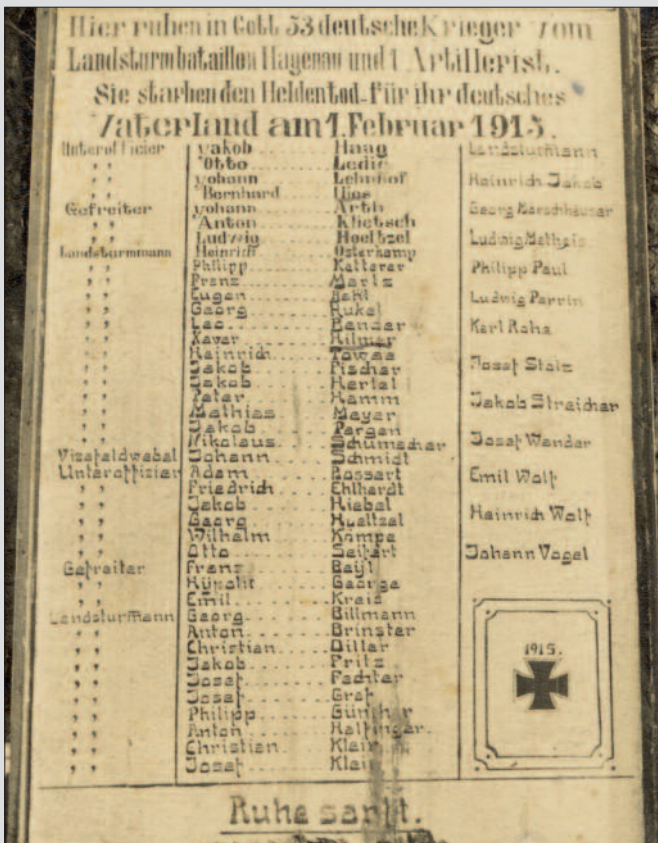 Hier ruhen in Gott 53 deutsche Krieger vom
Landsturmbataillon Hagenau und 1 Artillerist.
Sie starben den Heldentod für ihr deutsches
Vaterland am 1. Februar 1915.
Unteroffizier Jakob Haag
,, Otto Ledig
,, Johann Lehnhof
,, Bernhard
Gefreiter Johann Arth
,, Anton Klietsch
,, Ludwig Hoeltzel
Landsturmmann Heinrich Osterkamp
,, Philipp Ketterer
,, Franz Martz
,, Eugen
,, Georg Kukel
,, Leo Bender
,, Xaver Hilmer
,, Heinrich Towae
,, Jakob Fischer
,, Jakob Hertel
,, Peter Hamm
,, Mathias Meyer
,, Jakob Pargen
,, Nikolaus Schumacher
Vizefeldwebel Johann Schmidt
Unteroffizier Adam Bossert
,, Friedrich Ehlhardt
,, Jakob Hiebel
,, Georg Hueltzel
,, Wilhelm Kömpe
,, Otto Seifert
Gefreiter Franz Beyl
,, Hypolit George
,, Emil Kreis
Landsturmann Georg Billmann
,, Anton Brinster
,, Christian Diller
,, Jakob Fritz
,, Josef Fechter
,, Josef Graf
,, Philipp Günther
,, Anton Halfinger
,, Christian Klein
,, Josef Klein
Landsturmann
Heinrich Jakob
Georg Karschhäuser
Ludwig Matheis
Philipp Paul
Ludwig Perrin
Karl Rahe
Josef Stolz
Jakob Streicher
Josef Wender
Emil Wolf
Heinrich Wolf
Johann Vogel
1915.
Ruhe sanft.